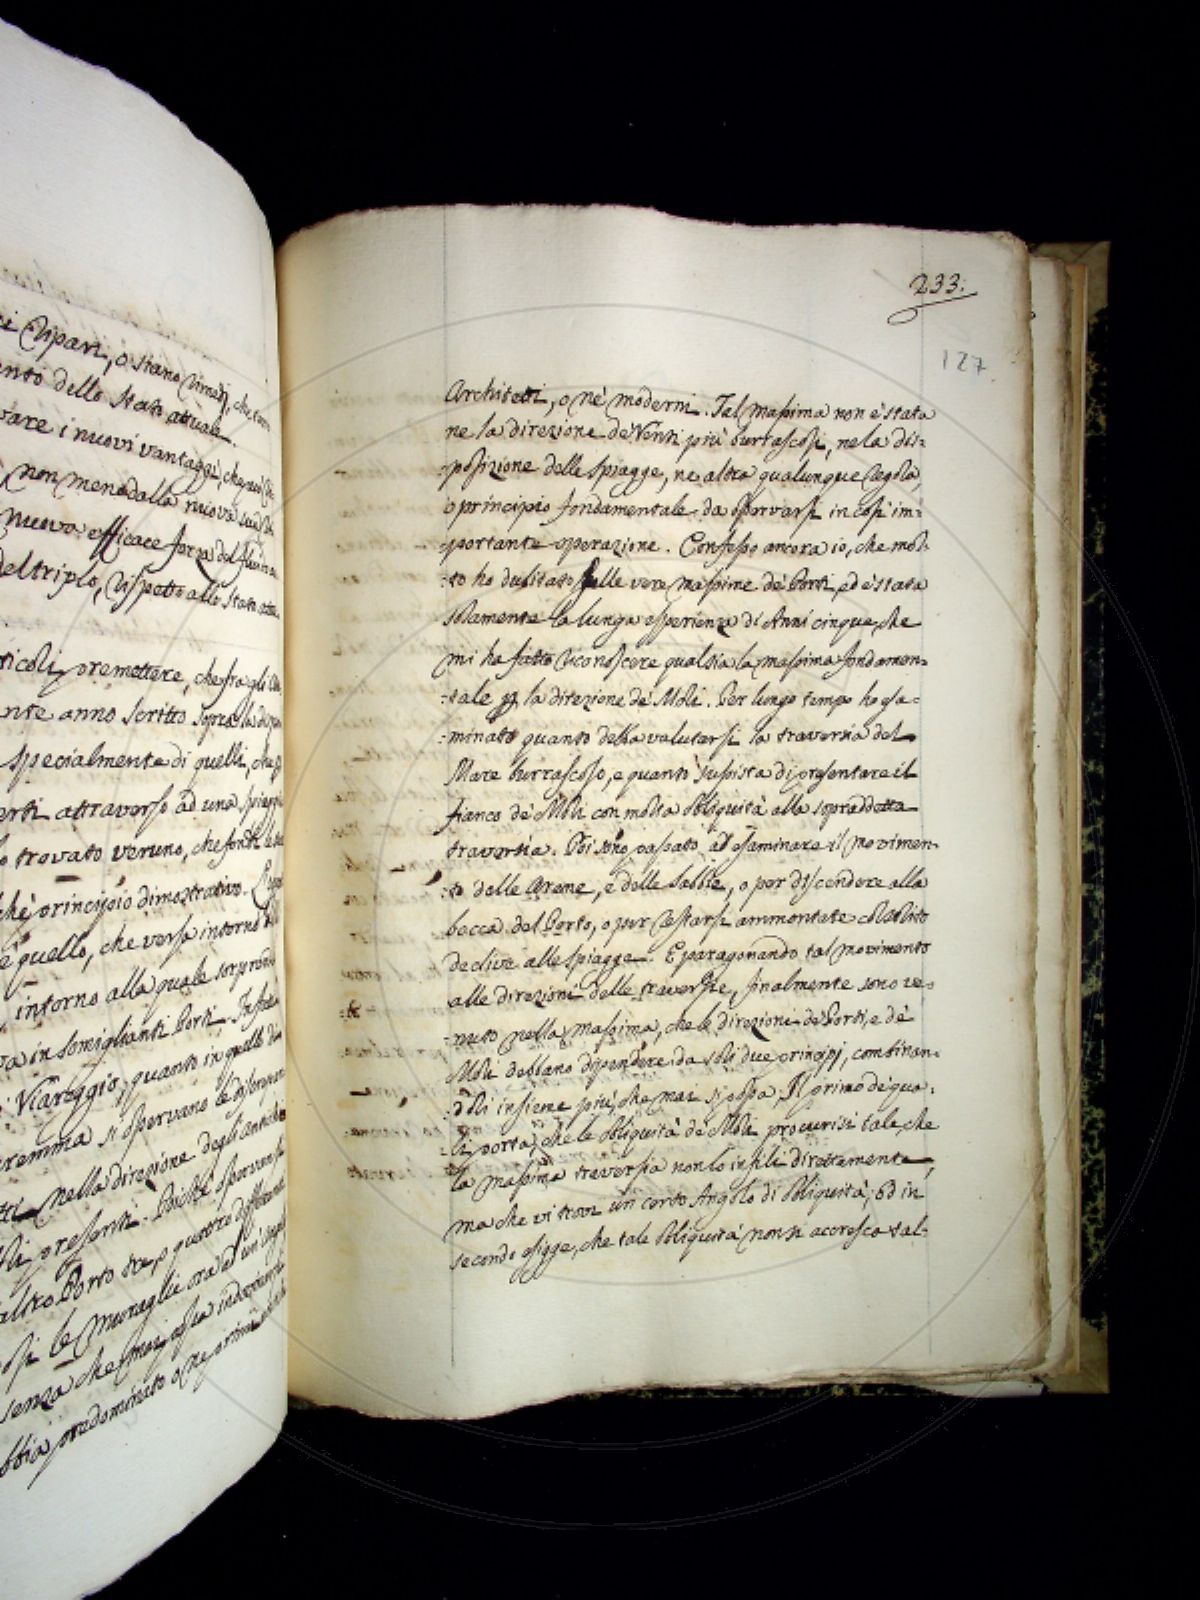 ri ripari, o stano rimedj, che
ento dello stato attuale.
vare i nuovi vantaggi, che
non meno dalla nuova
nuova efficace forza del
del triplo, rispetto allo stato
ticoli premettere, che fra gli
nte anno scritto sopra la
specialmente di quelli, che
erti attraverso ad una spiaggia
o trovato veruno, che fondi
che principio dimostrativo.
è quello, che versa intorno
intorno alla quale
va in somiglianti Porti.
Viareggio, quanto in quello di
aremma si osservano le
tti nella direzione degl'antichi
li presenti. Poiche osservansi
altro Porto tre, o quattro differenti
le muraglie ora ad un
senza che mai possa
bbia predominato
233.
127.
Architetti, o ne' moderni. Tal massima non è stata
ne la direzione de' Venti più burrascosi, ne la dis=
=posizione delle spiagge, ne altra qualunque regola,
o principio fondamentale da osservarsi in così im=
=portante operazione. Confesso ancora io, che mol=
=to ho dubitato sulle vere massime de' Porti, ed è stata
solamente la lunga esperienza di Anni cinque, che
mi ha fatto riconoscere qual sia la massima fondamen=
=tale p. la direzione de' Moli. Per lungo tempo ho esa=
=minato quanto debba valutarsi la traversia del
Mare burrascoso, e quanto sussista di presentare il
fianco de' Moli con molta obliquità alla sopraddetta
traversia. Poi sono passato ad esaminare il movimen=
=to delle Arene, e delle Sabbie, o per discendere alla
bocca del Porto, o per restarsi ammontate col solito
declive alle spiagge. E paragonando tal movimento
alle direzioni delle traversie, finalmente sono ve=
=nuto nella massima, che le direzione de' Porti, e de'
Moli debbano dipendere da soli due principj, combinan=
=doli insieme più, che mai si possa, Il primo de' qua=
=li porta, che le obliquità de' Moli procurisi tale, che
la massima traversia non lo infili direttamente,
ma che vi trovi un certo Angolo di obliquità; ed in
secondo esigge, che tale obliquità non si accresca tal=